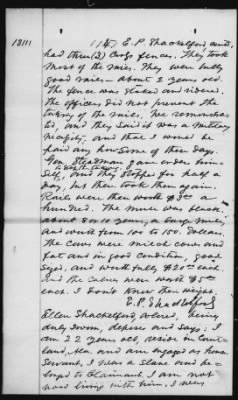 13111
115, E.P. Shackelford cont.
had three (3) Corps fences. They took
most of the rails. They were fully
good rails - about 2 years old.
The fence was staked and ridered.
The officers did not prevent the
taking of the rails. We remonstra-
ted, and they said it was a military
necessity, and that I would be
paid any how some of these days.
Gen. Steadman gave orders him-
self, to stop the taking, and they stopped for half a
day, but then took them again.
Rails were then worth $3.00 a
hundred. The mule was black,
about 8 or 10 years, a large mule,
and worth from 100 to 150. Dollars.
The Cows were milch cows and
fat and in good condition, good
sized, and worth fully $20 each.
And the Calves were worth $5
each. I don't know their weight.
E.P. Shackelford
Ellen Shackelford, colored, being
duly sworn, depose and says: I
am 22 years old, reside in
and am engaged as house
servant, I was a slave and be-
longed to Claimant. I am not
now living with him. I were